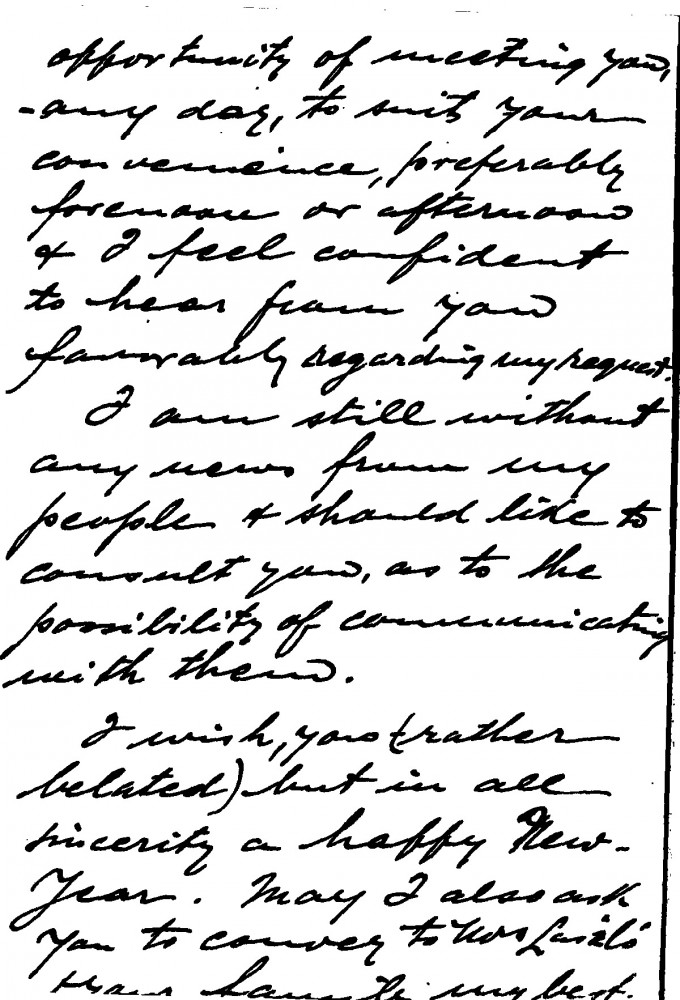 opportunity of meeting you,
- any day, to suit your
convenience, preferably
forenoon or afternoon
& I feel confident
to hear from you
favorably regarding my request.
I am still without
any news from my
people & should like to
consult you, as to the
possibility of communicating
with them.
I wish, you (rather
belated) but in all
sincerity a happy New-
Year. May I also ask
you to convey to Mrs László
your family my best